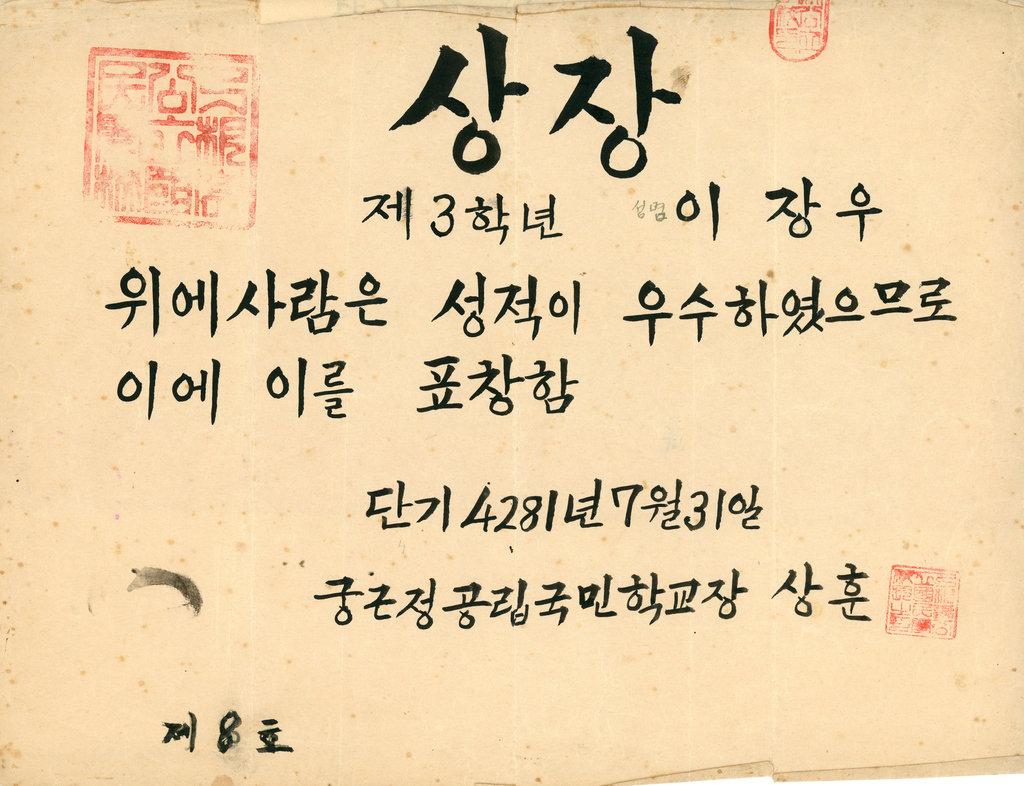 상장
제3학년 성명 이장우
위에사람은 성적이 우수하였으므로
이에 이를 표창함
단기4281년7월31일
궁근정공립국민학교장 상훈
제8호